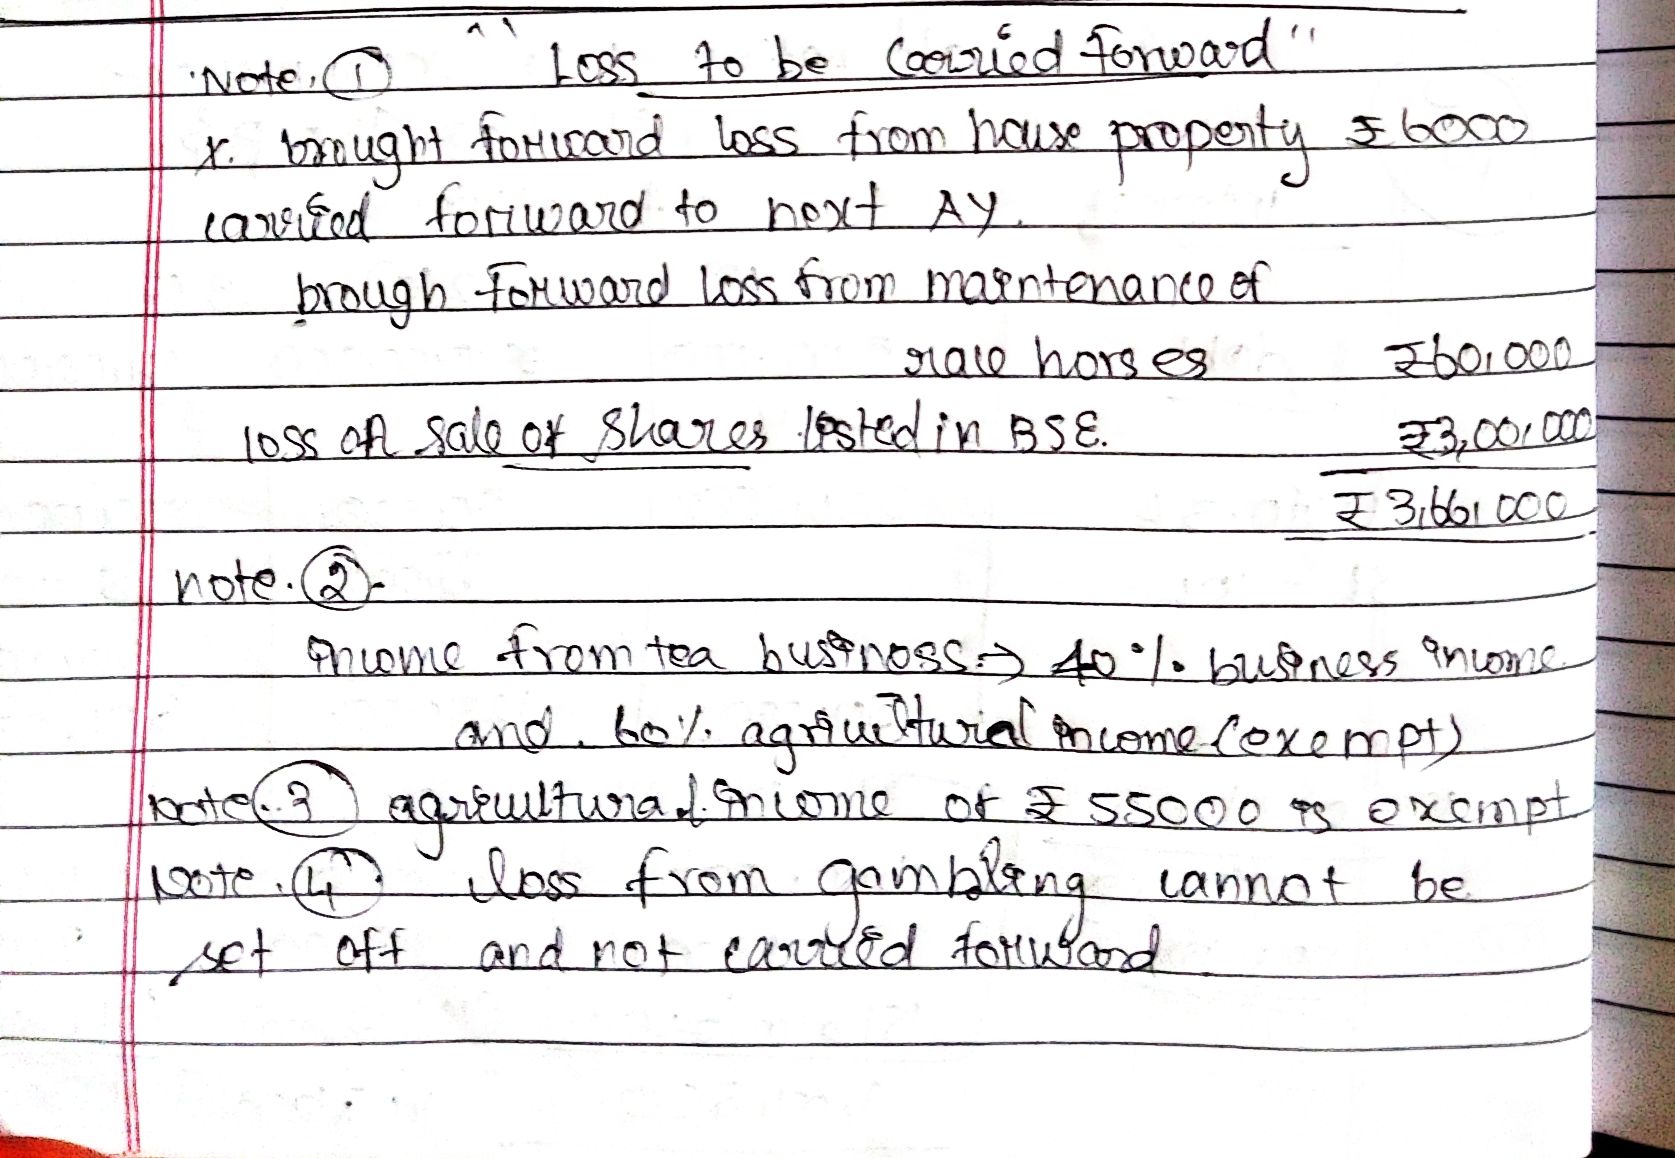 Note. ① "Loss to be Carried forward"
x. brought forward loss from house property ₹ 6000
carried forward to next AY.
brough forward loss from maintenance of
race horses ₹60,000
loss on sale of shares listed in BSE. ₹3,00,000
₹ 3,66,000
note. ②-
income from tea business → 40% business income
and. 60% agricultural income (exempt)
Note. 3 agricultural income of ₹ 55000 is exempt
Note. ④. loss from gambling cannot be
set off and not carried forward